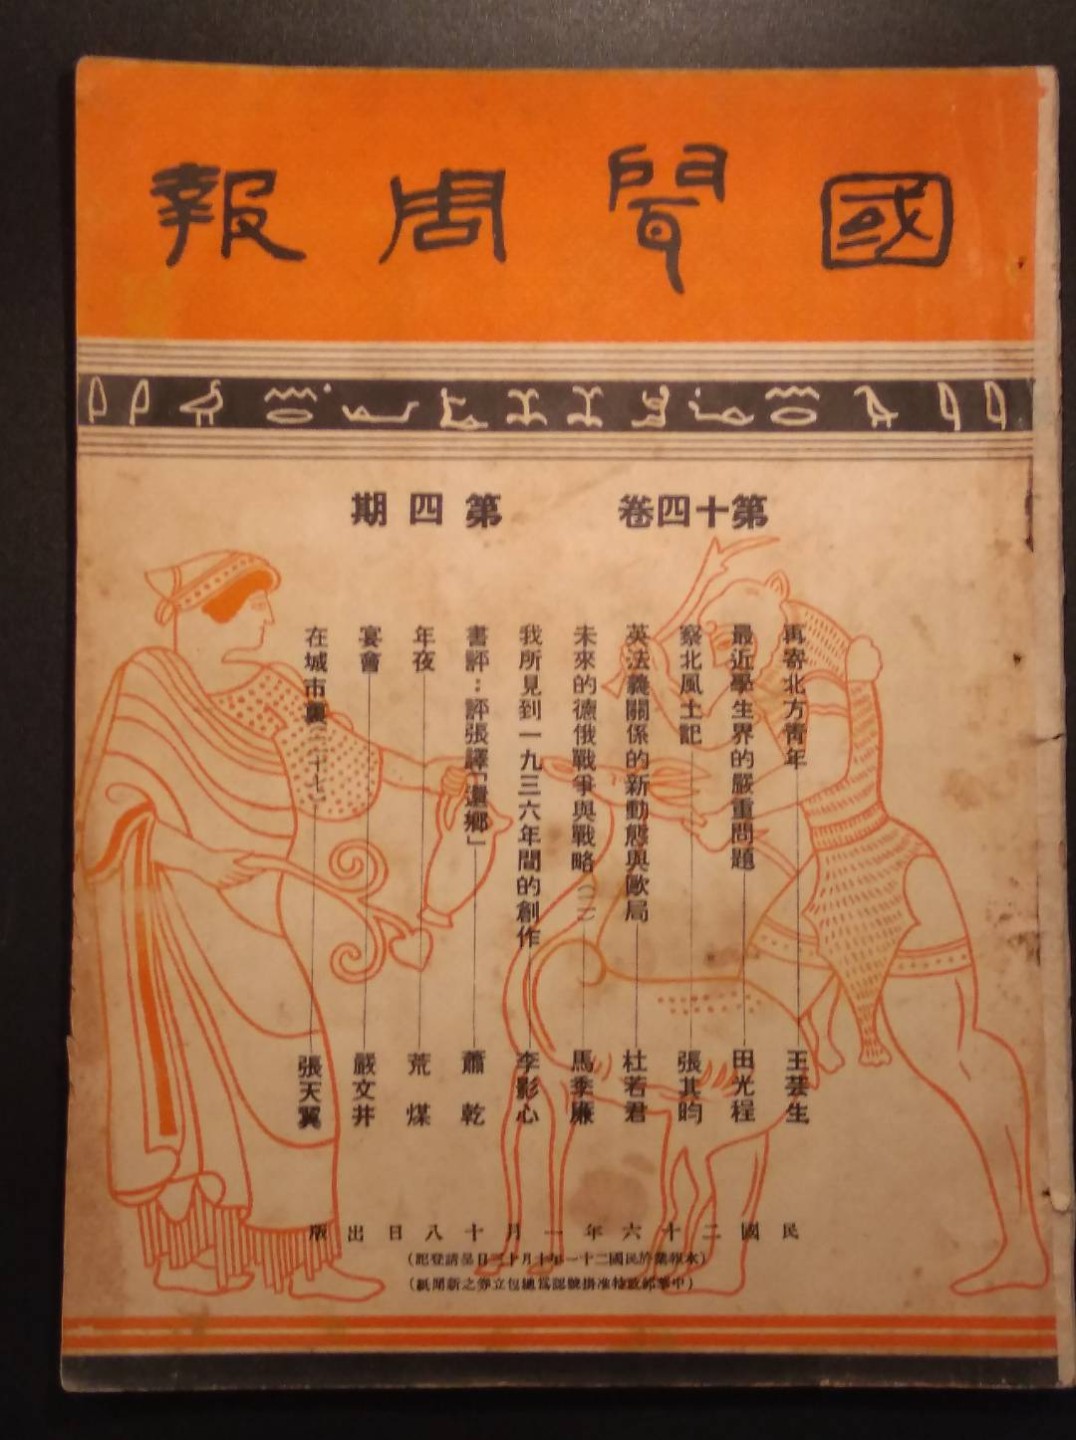 國聞周報
第十四卷 第四期
再寄北方青年 王芸生
最近學生界的嚴重問題 田光程
察北風土記 張其昀
英法義關係的新動態與歐局 杜若君
未來的德俄戰爭與戰略(二) 馬季廉
我所見到一九三六年間的創作 李影心
書評:評張譯「還鄉」 蕭乾
年夜 荒煤
宴會 嚴文井
在城市裏(二十七) 張天翼
民國二十六年一月十八日出版
(本報業於民國二十一年十月十三日呈請登記)
(中華郵政特准掛號認爲總包立券之新聞紙)